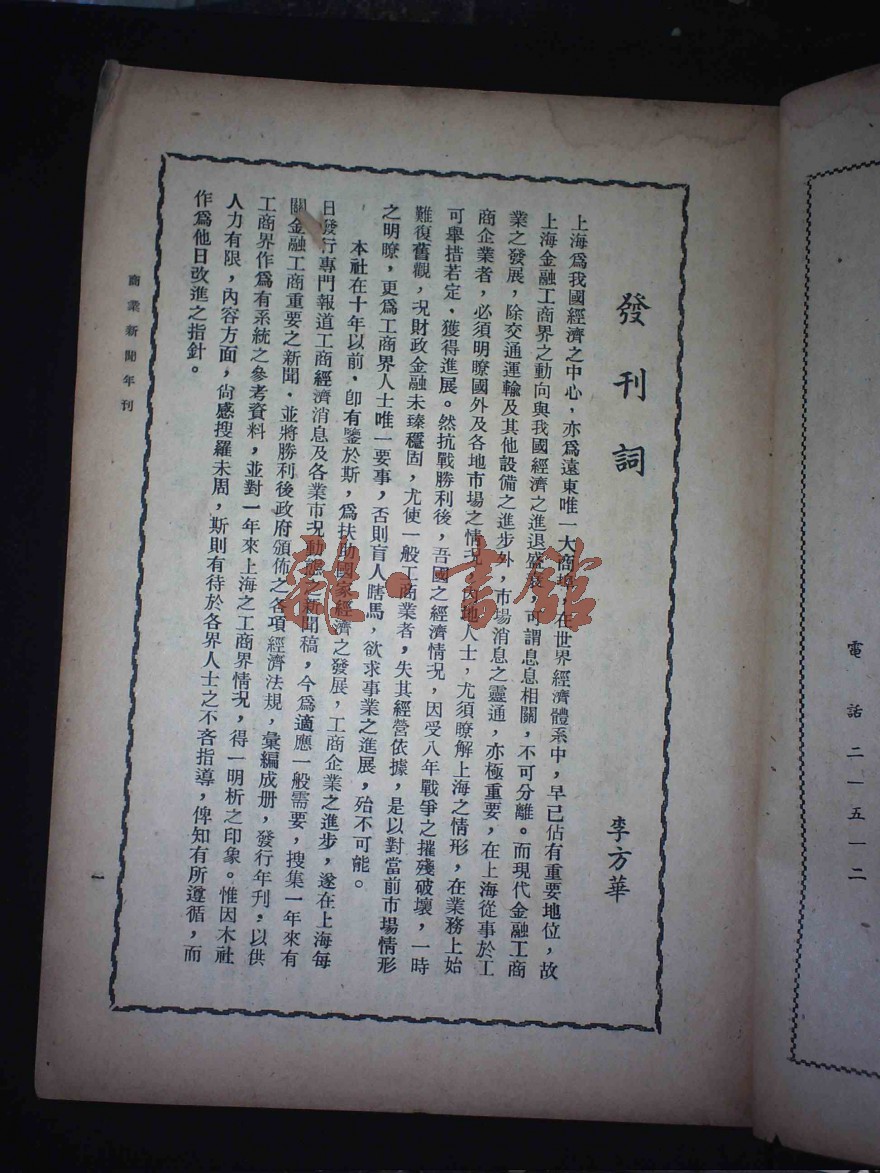 發刊詞
李方華
上海爲我國經濟之中心，亦爲遠東唯一大商埠，在世界經濟體系中，早已佔有重要地位，故
上海金融工商界之動向與我國經濟之進退盛衰，可謂息息相關，不可分離。而現代金融工商
業之發展，除交通運輸及其他設備之進步外，市場消息之靈通，亦極重要，在上海從事於工
商企業者，必須明瞭國外及各地市場之情況，內地人士，尤須瞭解上海之情形，在業務上始
可舉措若定，獲得進展。然抗戰勝利後，吾國之經濟情況，因受八年戰爭之摧殘破壞，一時
難復舊觀，況財政金融未臻穩固，尤使一般工商業者，失其經營依據，是以對當前市場情形
之明瞭，更爲工商界人士唯一要事，否則盲人瞎馬，欲求事業之進展，殆不可能。
本社在十年以前，卽有鑒於斯，爲扶助國家經濟之發展，工商企業之進步，遂在上海每
日發行專門報道工商經濟消息及各業市況動態之新聞稿，今爲適應一般需要，搜集一年來有
關金融工商重要之新聞，並將勝利後政府頒佈之各項經濟法規，彙編成册，發行年刊，以供
工商界作爲有系統之參考資料，並對一年來上海之工商界情況，得一明析之印象。惟因木社
人力有限，內容方面，尙感搜羅未周，斯則有待於各界人士之不吝指導，俾知有所遵循，而
作爲他日改進之指針。
商業新聞年刊
一
電話二一五一二
雜·書館